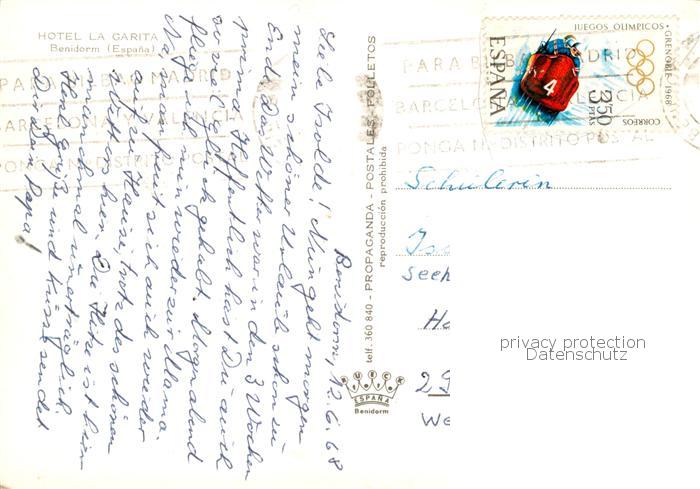 HOTEL LA GARITA
Benidorm (España)
Benidorm, 12.6.68
Liebe Isolde! Nun geht morgen
mein schöner Urlaub schon zu
End. Das Wetter war in den 3 Wochen
prima. Hoffentlich hast Du auch
so viel Glück gehabt. Morgen abend
fliege ich nun wieder zur Mama.
Na, man freut sich auch wieder
auf zu Hause, trotz des schönen
Hier. Die Hitze ist hier
manchmal unerträglich
Herzl. Grüße und Küsse sendet
Dir Dein Papa!
telf. 360 840 - PROPAGANDA - POSTALES - FOLLETOS
reproducción prohibida
RUECK
ESPAÑA
Benidorm
JUEGOS OLIMPICOS • GRENOBLE-1968
ESPAÑA
4
3'50
PTAS
CORREOS
PARA MADRID
BARCELONA Y VALENCIA
PONGA Nº DISTRITO POSTAL
Schülerin
Is
seeh
He
29
We
privacy protection
Datenschutz